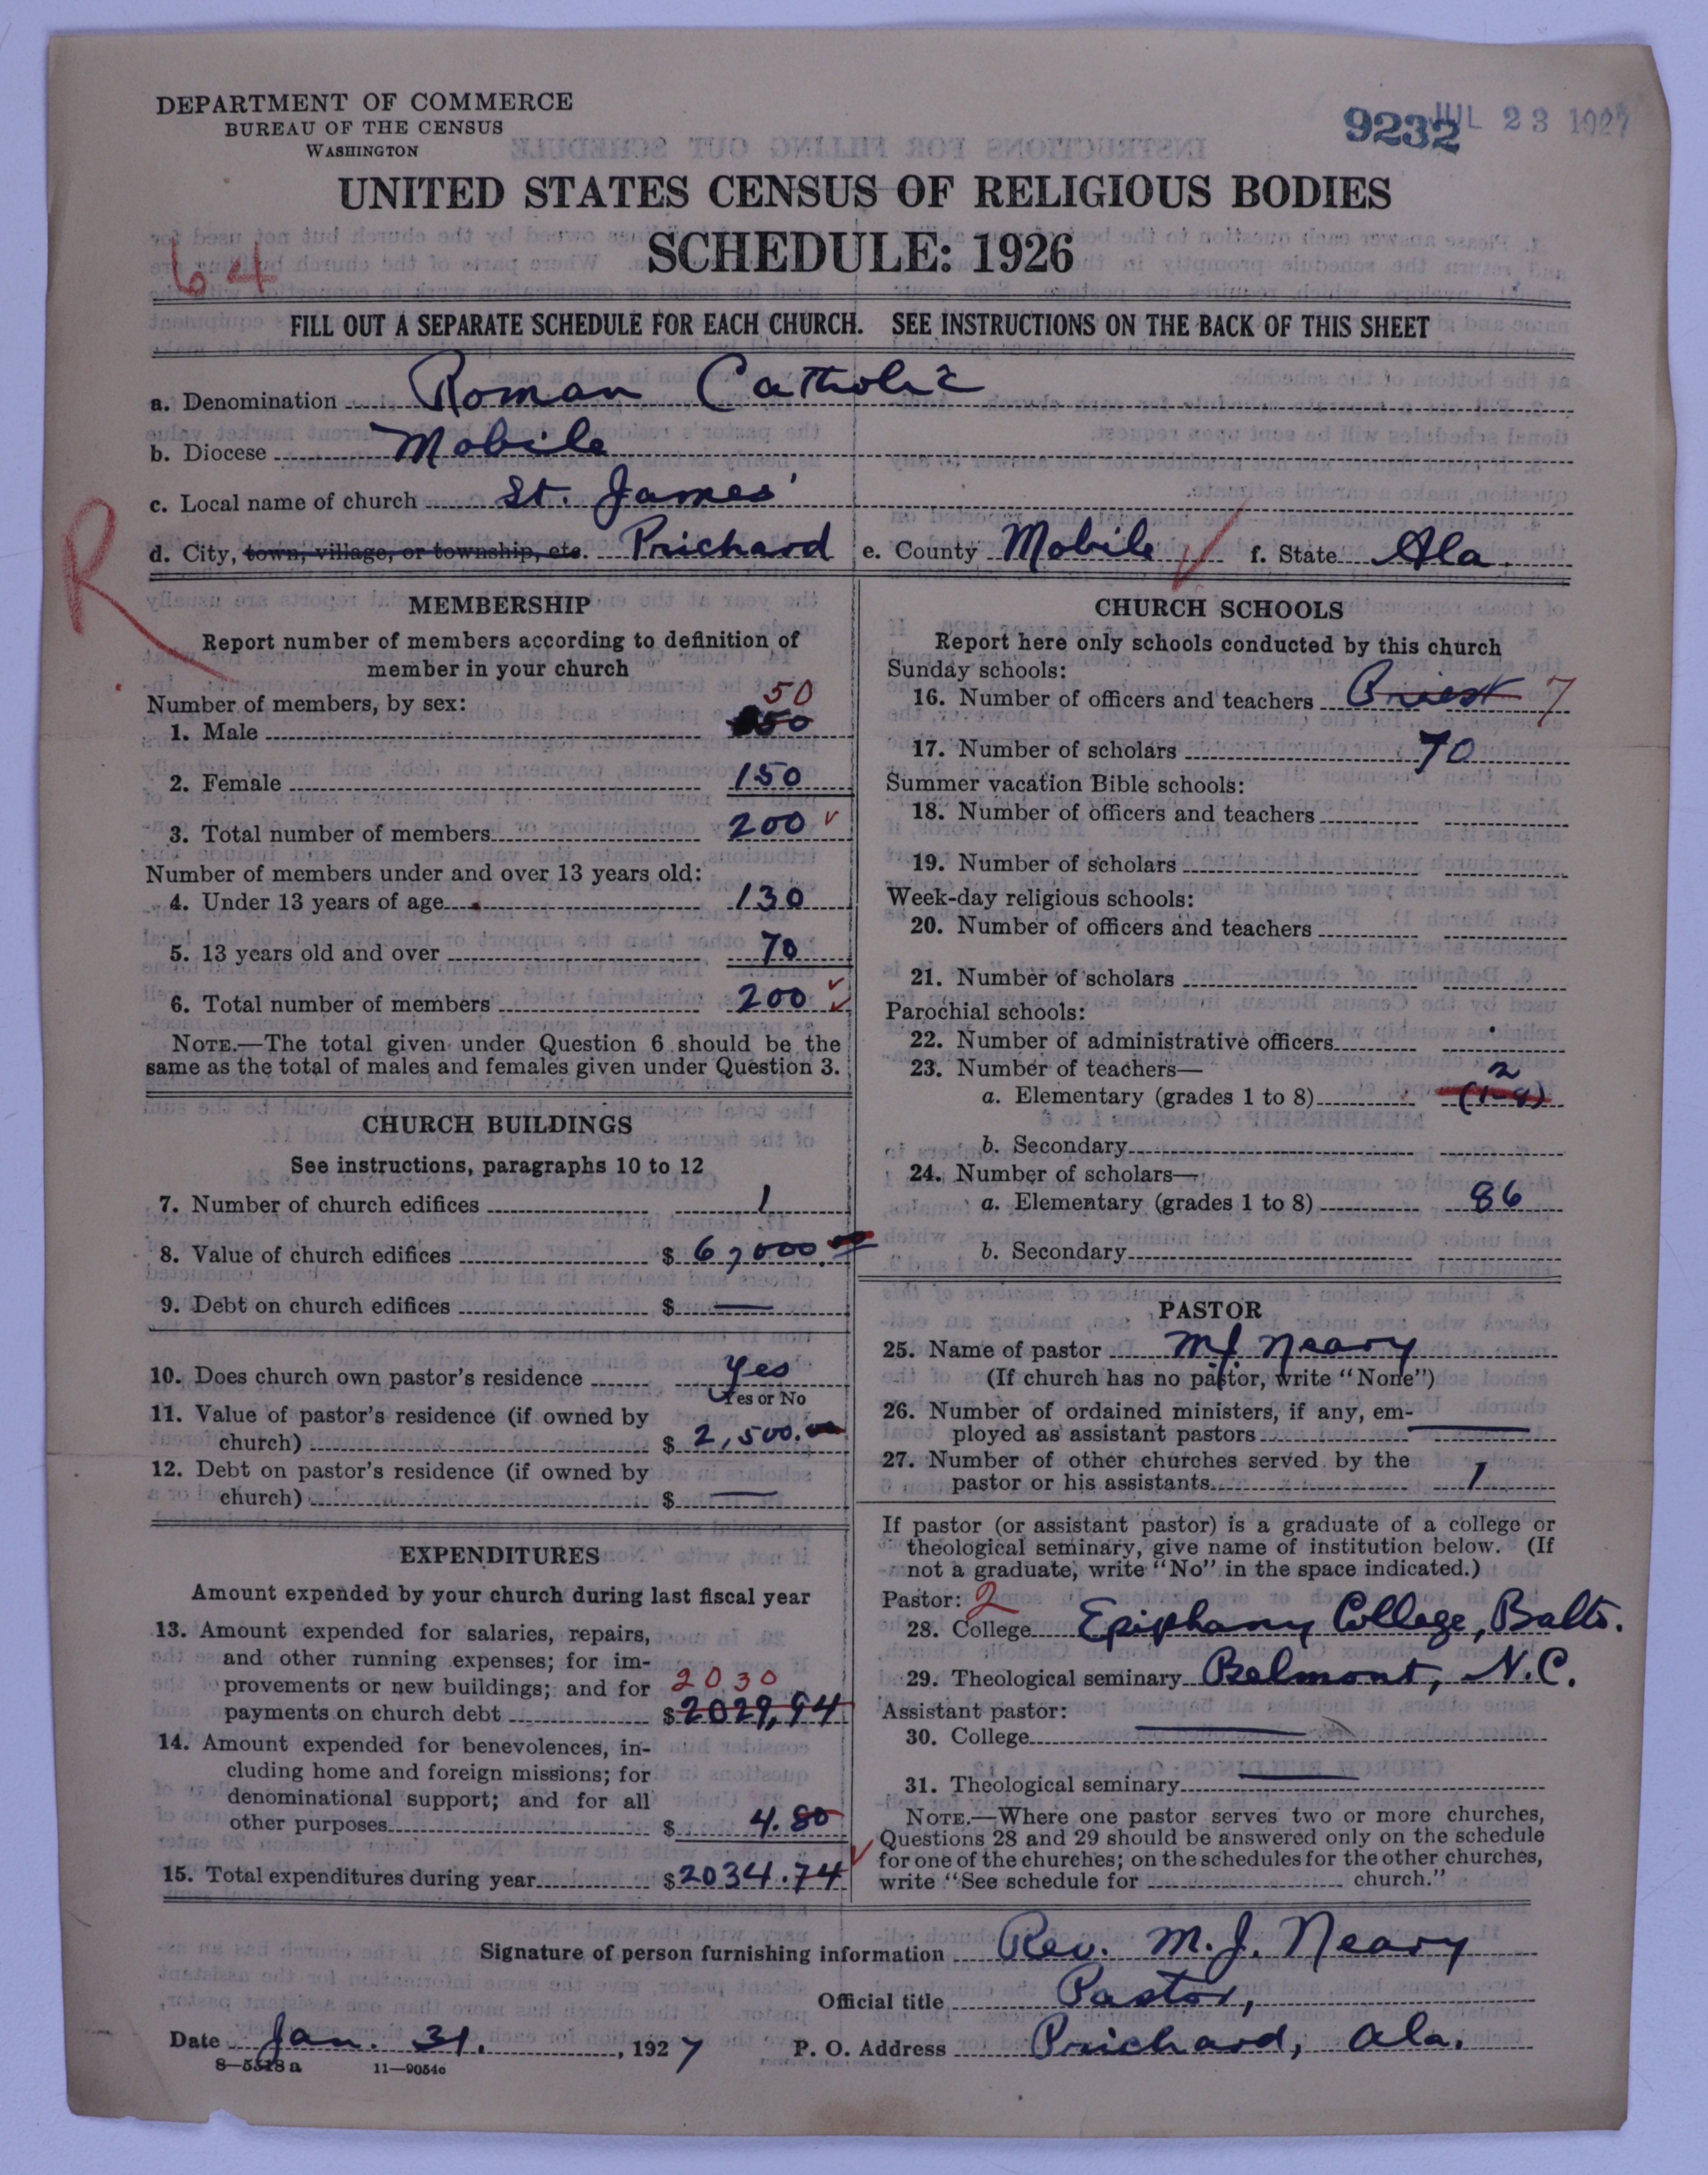 DEPARTMENT OF COMMERCE
BUREAU OF THE CENSUS
WASHINGTON
9232 JUL 23 1927
UNITED STATES CENSUS OF RELIGIOUS BODIES
SCHEDULE: 1926
64
FILL OUT A SEPARATE SCHEDULE FOR EACH CHURCH. SEE INSTRUCTIONS ON THE BACK OF THIS SHEET
a. Denomination Roman Catholic
b. Diocese Mobile
c. Local name of church St. James'
d. City, town, village, or township, etc. Prichard e. County Mobile f. State Ala.
R
MEMBERSHIP
Report number of members according to definition of
member in your church
Number of members, by sex:
50
1. Male 50
2. Female 150
3. Total number of members 200
Number of members under and over 13 years old:
4. Under 13 years of age 130
5. 13 years old and over 70
6. Total number of members 200
NOTE.—The total given under Question 6 should be the
same as the total of males and females given under Question 3.
CHURCH BUILDINGS
See instructions, paragraphs 10 to 12
7. Number of church edifices 1
8. Value of church edifices $ 6,000.00
9. Debt on church edifices $ —
10. Does church own pastor's residence Yes
Yes or No
11. Value of pastor's residence (if owned by
church) $ 2,500.00
12. Debt on pastor's residence (if owned by
church) $ —
EXPENDITURES
Amount expended by your church during last fiscal year
13. Amount expended for salaries, repairs,
and other running expenses; for im-
provements or new buildings; and for 2030
payments on church debt $ 2029,94
14. Amount expended for benevolences, in-
cluding home and foreign missions; for
denominational support; and for all
other purposes $ 4.80
15. Total expenditures during year $ 2034.74
CHURCH SCHOOLS
Report here only schools conducted by this church
Sunday schools:
16. Number of officers and teachers Priest 7
17. Number of scholars 70
Summer vacation Bible schools:
18. Number of officers and teachers
19. Number of scholars
Week-day religious schools:
20. Number of officers and teachers
21. Number of scholars
Parochial schools:
22. Number of administrative officers
23. Number of teachers— 2
a. Elementary (grades 1 to 8) (1-8)
b. Secondary
24. Number of scholars—
a. Elementary (grades 1 to 8) 86
b. Secondary
PASTOR
25. Name of pastor M.J. Neary
(If church has no pastor, write "None")
26. Number of ordained ministers, if any, em-
ployed as assistant pastors —
27. Number of other churches served by the
pastor or his assistants 1
If pastor (or assistant pastor) is a graduate of a college or
theological seminary, give name of institution below. (If
not a graduate, write "No" in the space indicated.)
Pastor: 2
28. College Epiphany College, Balto.
29. Theological seminary Belmont, N.C.
Assistant pastor:
30. College —
31. Theological seminary —
NOTE.—Where one pastor serves two or more churches,
Questions 28 and 29 should be answered only on the schedule
for one of the churches; on the schedules for the other churches,
write "See schedule for church."
Signature of person furnishing information Rev. M. J. Neary
Official title Pastor,
Date Jan. 31, 1927 P. O. Address Prichard, Ala.
8—5318a 11—9054c